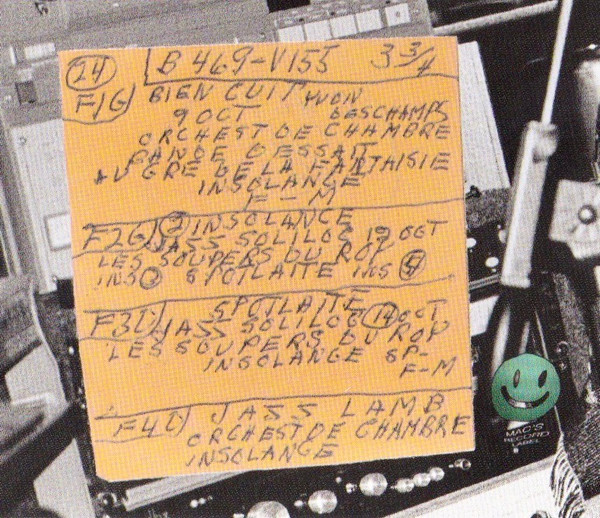 24 B 469-V155 3 3/4
F1G BIEN CUIT YVON
9 OCT DESCHAMPS
ORCHEST DE CHAMBRE
BANDE DESSAIT
AU GRE DE LA FANTAISIE
INSOLANGE
F-M
F2G 2 INSOLANGE
JASS SOLILOS 19 OCT
LES SOUPERS DU ROY
INS SPOTLAITE INS
F3D SPOTLAITE
JASS SOLILOS 14 OCT
LES SOUPERS DU ROY
INSOLANGE SP-
F-M
F4D JASS LAMB
ORCHEST DE CHAMBRE
INSOLANGE
MAC'S
RECORD
LABEL